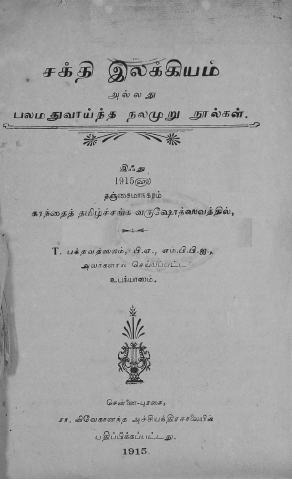 சக்தி இலக்கியம்
அல்லது
பலமதுவாய்ந்த நலமுறு நூல்கள்.
இஃது
1915௵
தஞ்சைமாநகரம்
காந்தைத் தமிழ்ச்சங்க வருஷோத்ஸவத்தில்,
T. பக்தவத்ஸலம், பி.ஏ., எம்.பி.பி.ஐ.,
அவர்களால் செய்யப்பட்ட
உபந்யாஸம்.
சென்னை-புரசை,
சா. விவேகானந்த அச்சியந்திரசாலையில்
பதிப்பிக்கப்பட்டது.
1915.